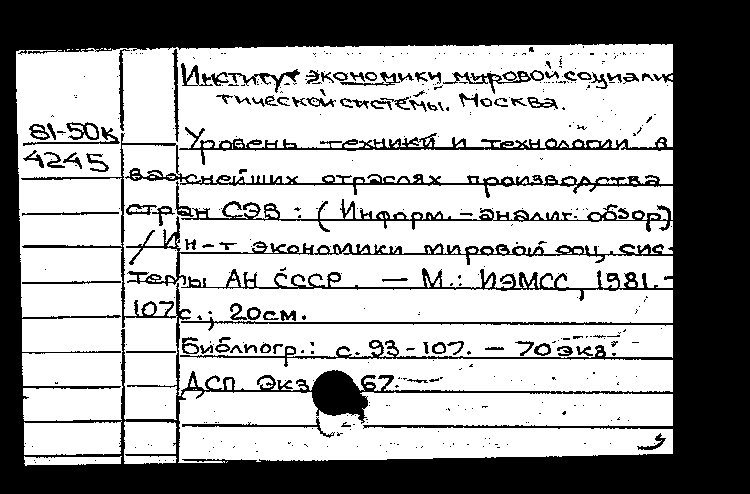 Институт экономики мировой социалис
тической системы. Москва.
81-50к
4245
Уровень техники и технологии в
важнейших отраслях производства
стран СЭВ : (Информ.-аналит. обзор)
/ Ин-т экономики мировой соц. сис-
темы АН СССР. — М.: ИЭМСС, 1981.-
107 с.; 20см.
Библиогр.: с. 93-107. — 70 экз.
ДСП. Экз 67.